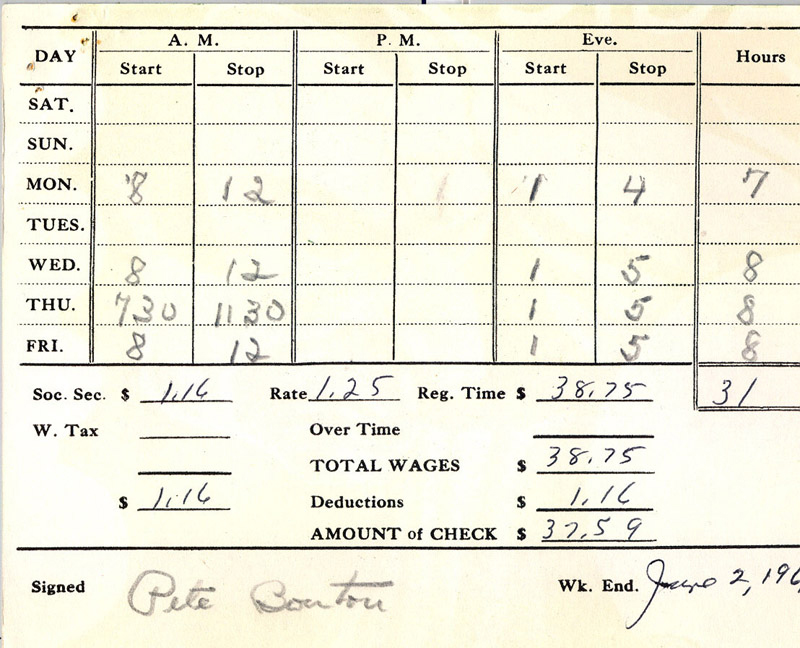 DAY A. M. P. M. Eve. Hours
Start Stop Start Stop Start Stop
SAT.
SUN.
MON. 8 12 1 4 7
TUES.
WED. 8 12 1 5 8
THU. 730 1130 1 5 8
FRI. 8 12 1 5 8
Soc. Sec. $ 1.16 Rate 1.25 Reg. Time $ 38.75 31
W. Tax Over Time
TOTAL WAGES $ 38.75
$ 1.16 Deductions $ 1.16
AMOUNT of CHECK $ 37.59
Signed Pete Bonton Wk. End. June 2, 196